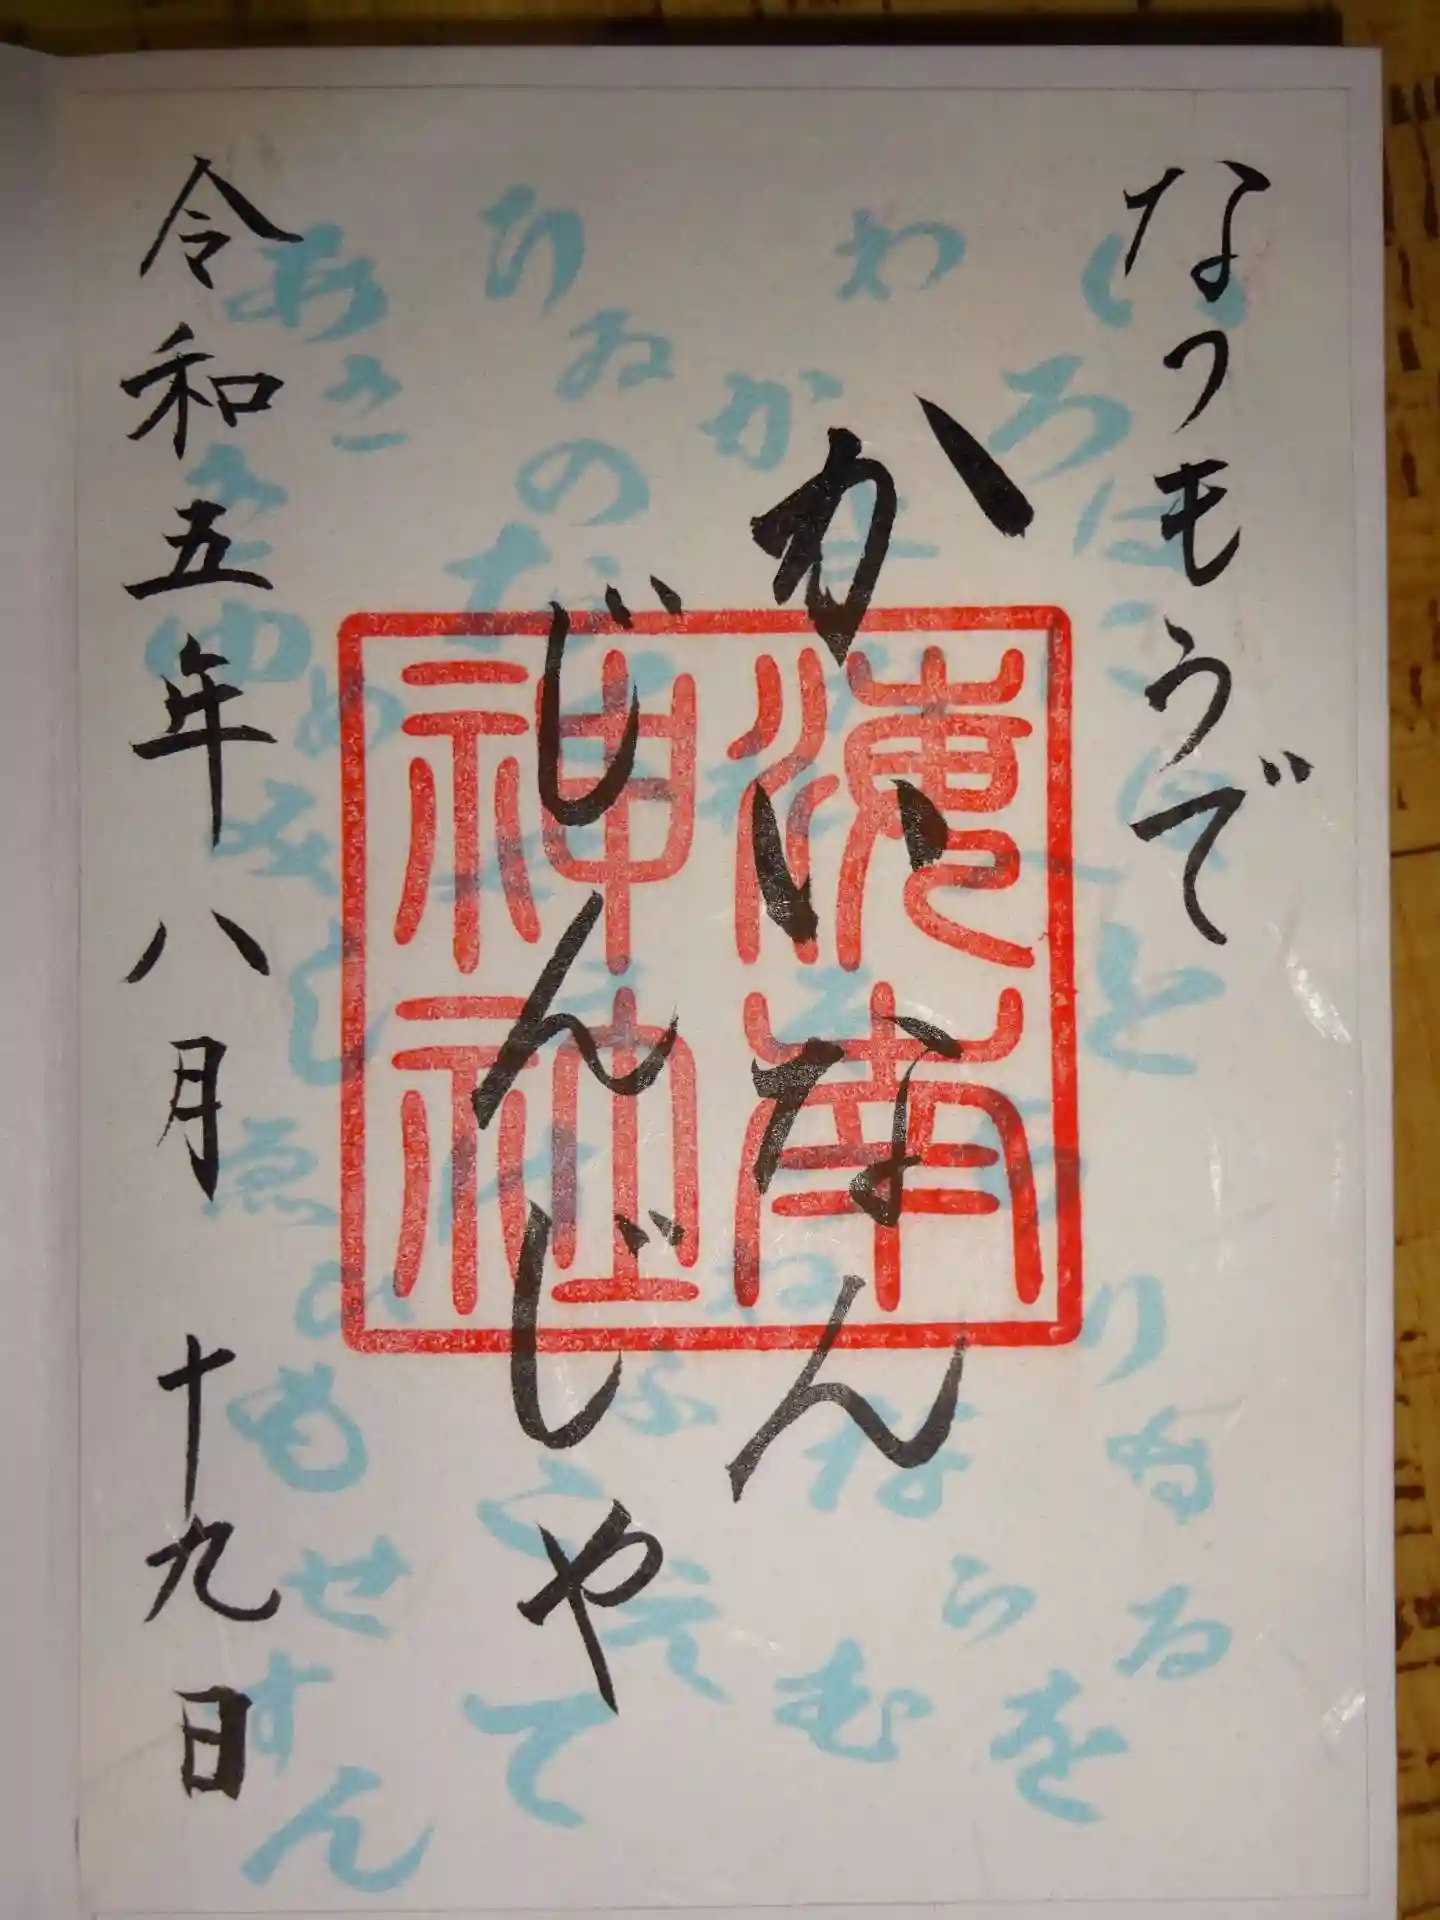 なつもうで
かいなん
じんじや
令和五年八月十九日
海南
神社
いろはにほへと
ちりぬるを
わかよたれそ
つねならむ
うゐのおくやま
けふこえて
あさきゆめみし
ゑひもせすん